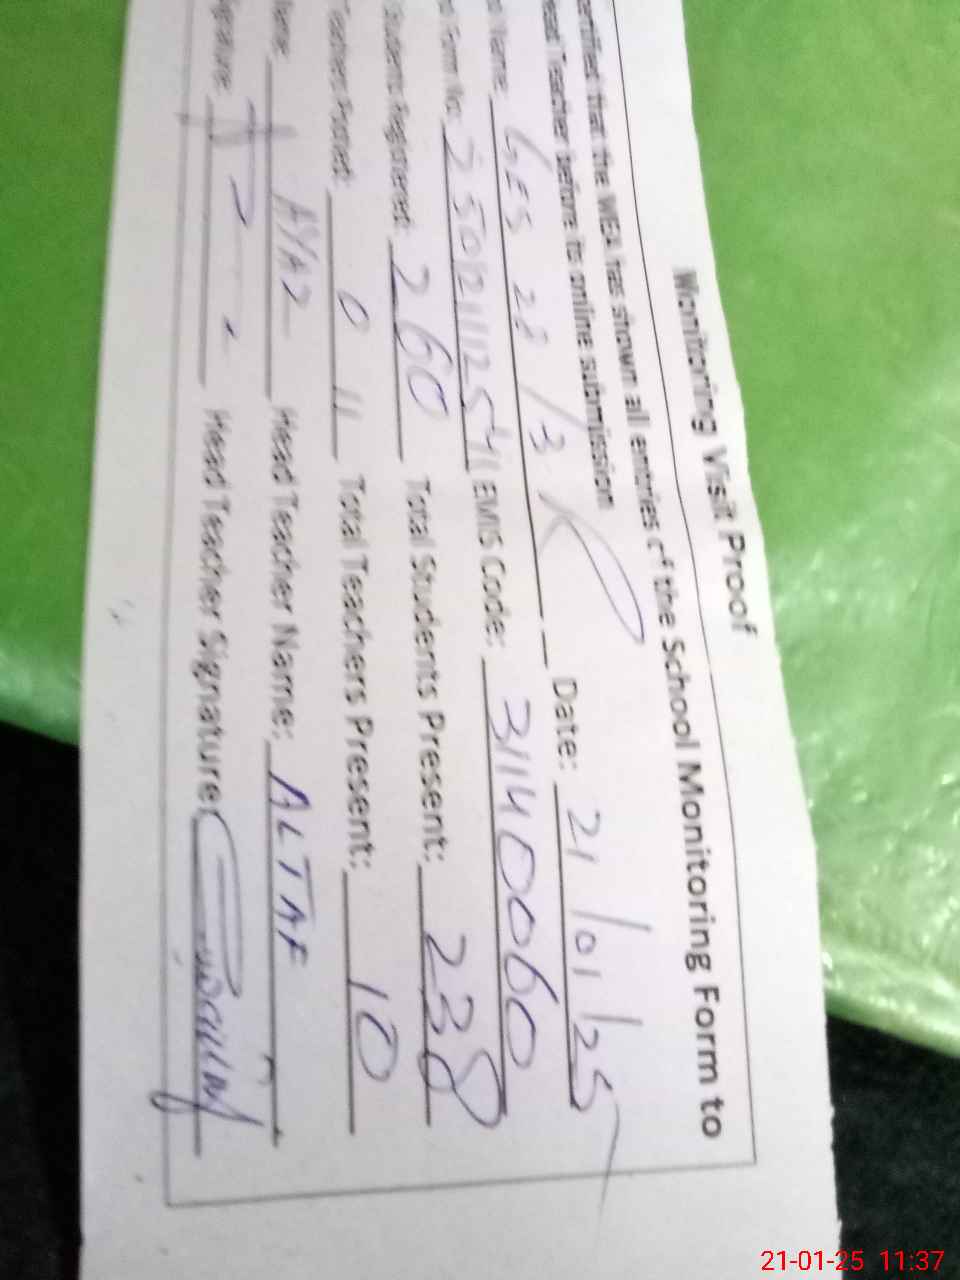 Monitoring Visit Proof
that the MEA has shown all entries of the School Monitoring Form to
Teacher before its online submission
Name: GES 28/3R Date: 21/01/25
Form No: EMIS Code: 31140060
Students Registered: 260 Total Students Present: 238
Teachers Posted: 011 Total Teachers Present: 10
Name: AYAZ Head Teacher Name: ALTAF
Signature: Head Teacher Signature:
21-01-25 11:37